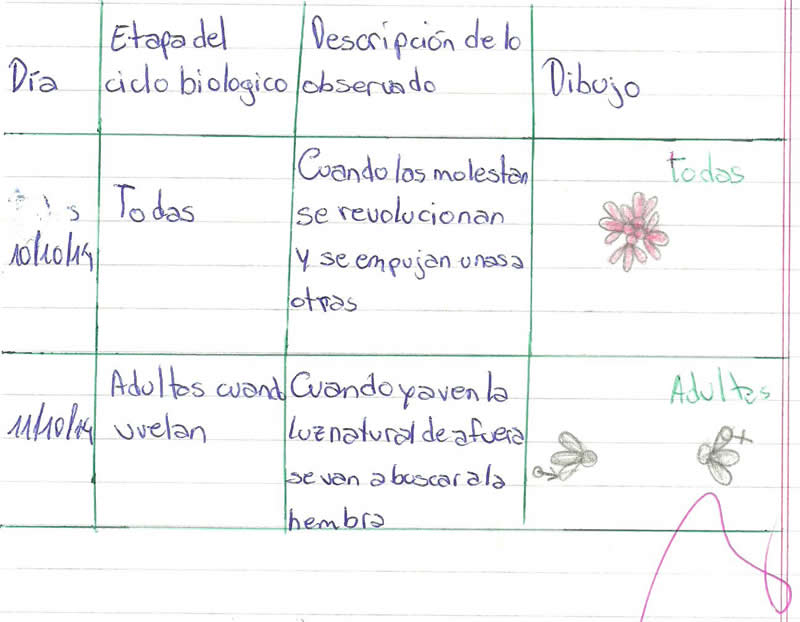 Día
Etapa del
ciclo biologico
Descripción de lo
observado
Dibujo
10/10/14
Todas
Cuando las molestan
se revolucionan
y se empujan unas a
otras
todas
11/10/14
Adultos cuand
uvelan
Cuando ya ven la
luz natural de afuera
se van a buscar a la
hembra
Adultos